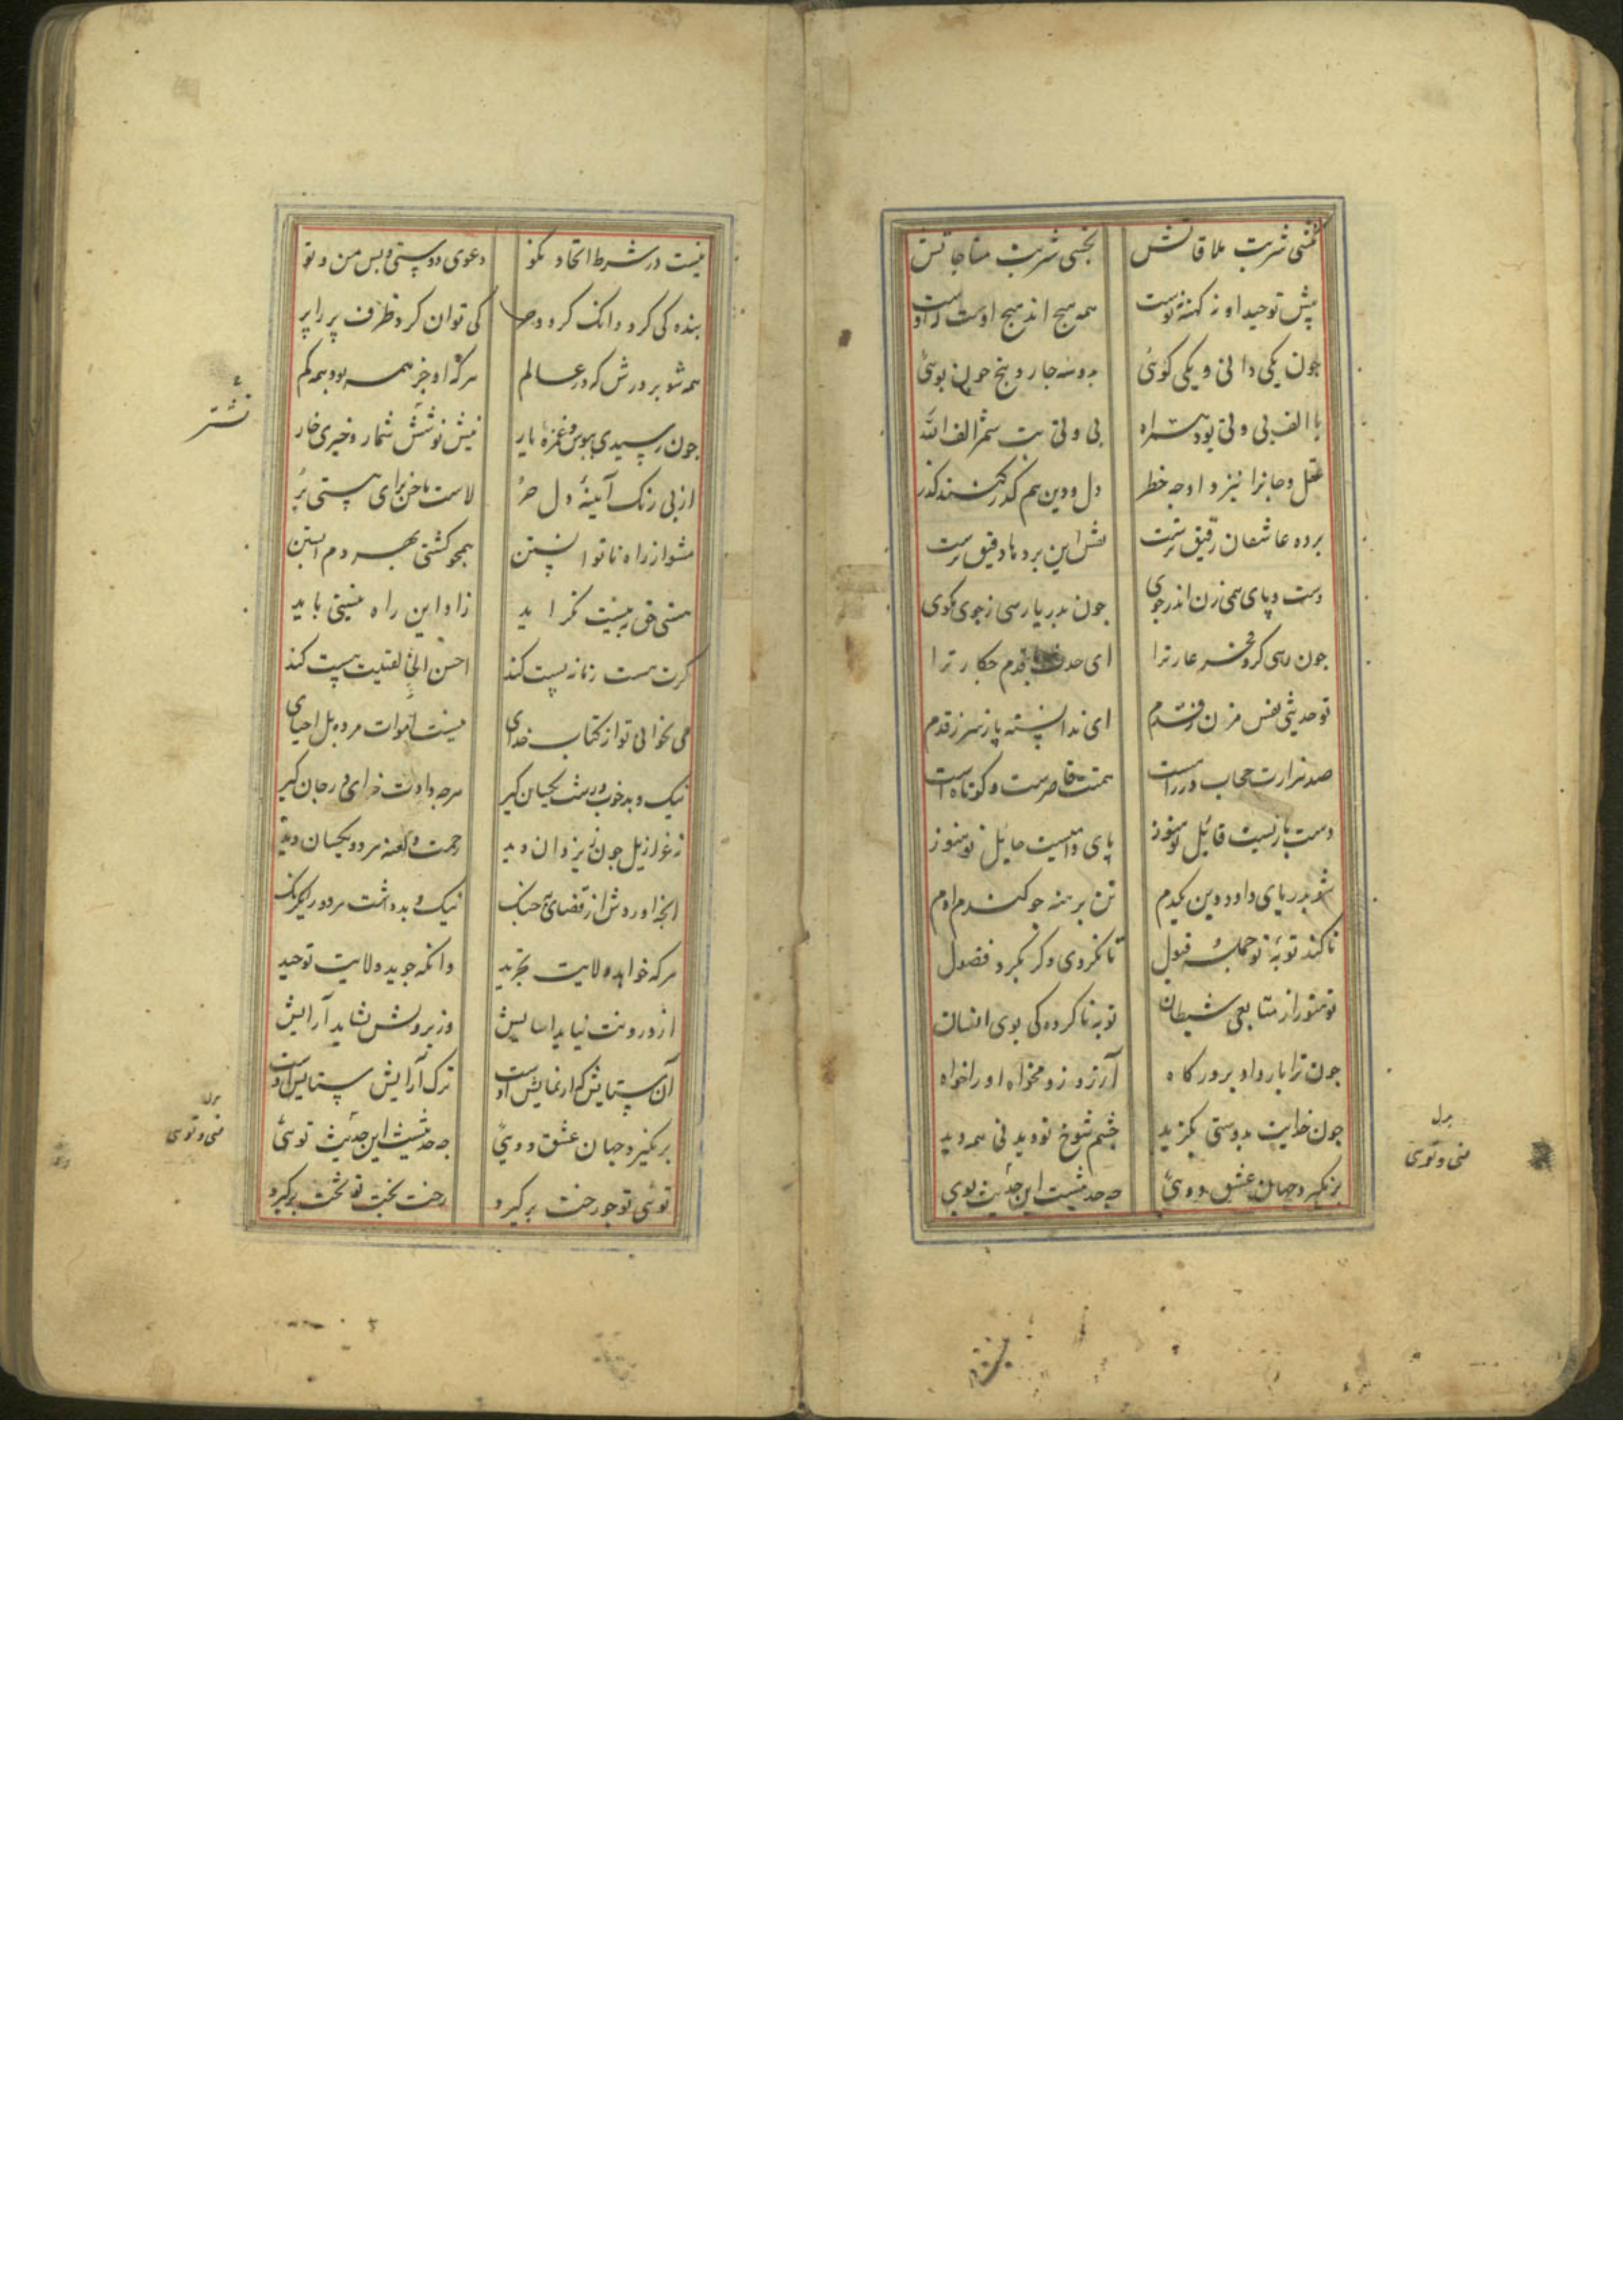 بچشی شربت ملاقاتش بچشی شربت مناجاتش
پیش توحید او نه کهنه نوست همه هیچ اند هیچ اوست که اوست
چون یکی دانی و یکی کوئی بدو و سه چار و پنج چون بوئی
با الف بی و تی بود همراه بی و تی بت شمر الف الله
عقل و جانرا نیز و او چه خطر دل و دین هم کذر کنند کذر
برده عاشقان رقیق ترست نقش این بردها دقیق ترست
دست و پای همی زن اندر جوی چون بدریا رسی ز جوی مکوی
چون رسی کرد فخر عار ترا ای حدث با قدم چکار ترا
تو حدیثی نفس مزن ز قدم ای ندانسته باز سر ز قدم
صد هزارت حجاب در راهست همتت قاصرست و کوتاهست
دست بازنیست قائل تو هنوز پای دامیست حایل تو هنوز
شو بدریای داد و دین یکدم تن برهنه چو کندم آدم
تا کند توبه تو جمله قبول تا نکردی دکر بکرد فضول
تو هنوز از متابعی شیطان توبه ناکرده کی بوی انسان
چون ترا بار داد بر درکاه آرزو زو مخواه او را خواه
چون خدایت بدوستی بکزید چشم شوخ تو دیدنی همه دید
برنکیرد جهان عشق دوئی چه حدیثست این حدیث توئی
بدل
منی و توئی
نیست در شرط اتحاد نکو دعوی دوستی و پس من و تو
بنده کی کردد انک کردد حر کی توان کرد ظرف پر را پر
همه شو بر درش که در عالم هرکه او جز همه بود همه کم
چون رسیدی ببوس و غمزه یار نیش نوشش شمار و خیری خار
از پی رنک آینه دل حر لاست ناخن برای هستی بر
مشو از راه ناتوانستن همچو کشتی بهر دم آبستن
هستی حق به نیست نکراید زاد این راه نیستی باید
کرت هست زمانه پست کند احسن الخالقینت هست کند
می بخوانی تو از کتاب خدای نیست اموات مرده بل احیای
نیک و بد خوب و زشت یکسان کیر هرچه دادت خدای در جان کیر
نه عزازیل چون ز یزدان دید رحمت و لعنه هر دو یکسان دید
انچه آوردش از قضای بجنک نیک و بد داشت هر دو در یکرنک
هرکه خواهد ولایت تجرید وانکه جوید ولایت توحید
از درونت نیاید آسایش وز برونش نشاید آرایش
آن ستایش که از نمایش اوست ترک آرایش ستایش اوست
برنکیرد جهان عشق دوئی چه حدیثست این حدیث توئی
توئی تو چو رخت برکیرد رخت بخت تو تخت برکیرد
نشتر
بدل
منی و توئی